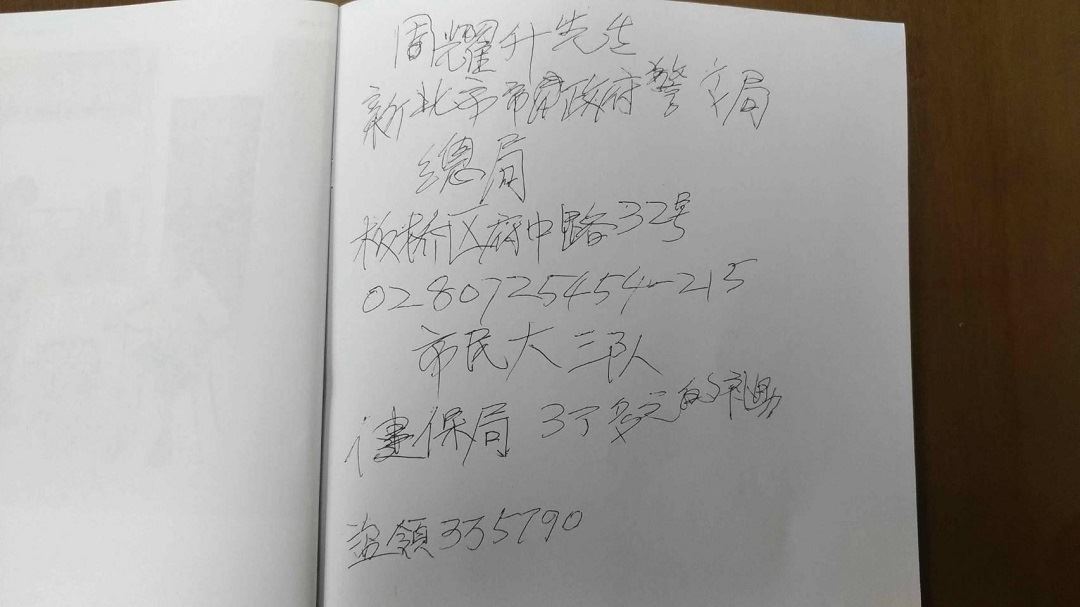 周耀升先生
新北市市政府警文局
總局
板桥区府中路32号
0280725454-215
市民大三队
健保局 3万多元的补助
盗領3万5790